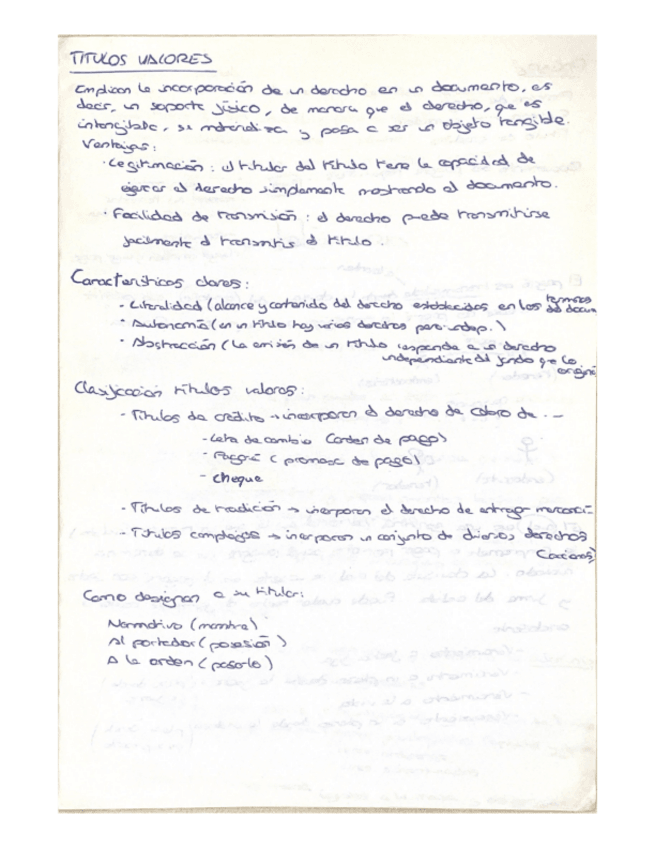 TITULOS VALORES
Implican la incorporación de un derecho en un documento, es
decir, un soporte físico, de manera que el derecho, que es
intangible, se materializa y pasa a ser un objeto tangible.
Ventajas:
· Legitimación: el titular del título tiene la capacidad de
ejercer el derecho simplemente mostrando el documento.
· Facilidad de transmisión: el derecho puede transmitirse
fácilmente al transmitir el título.
Características claves:
- Literalidad (alcance y contenido del derecho establecidos en los términos del docum
· Autonomía (en un título hay varios derechos pero indep.)
· Abstracción (la emisión de un título responde a un derecho
independiente del fundo que lo
origina
Clasificación títulos valores:
- Títulos de crédito → incorporan el derecho de cobro de...
- Letra de cambio (orden de pago)
- Pagaré (promesa de pago)
- cheque
- Títulos de tradición → incorporan el derecho de entrega mercancí-
- Títulos complejos → incorporan un conjunto de diversos derechos
(acciones)
Como designan a su titular:
Normativo (nombre)
Al portador (posesión)
A la orden (pasarlo)